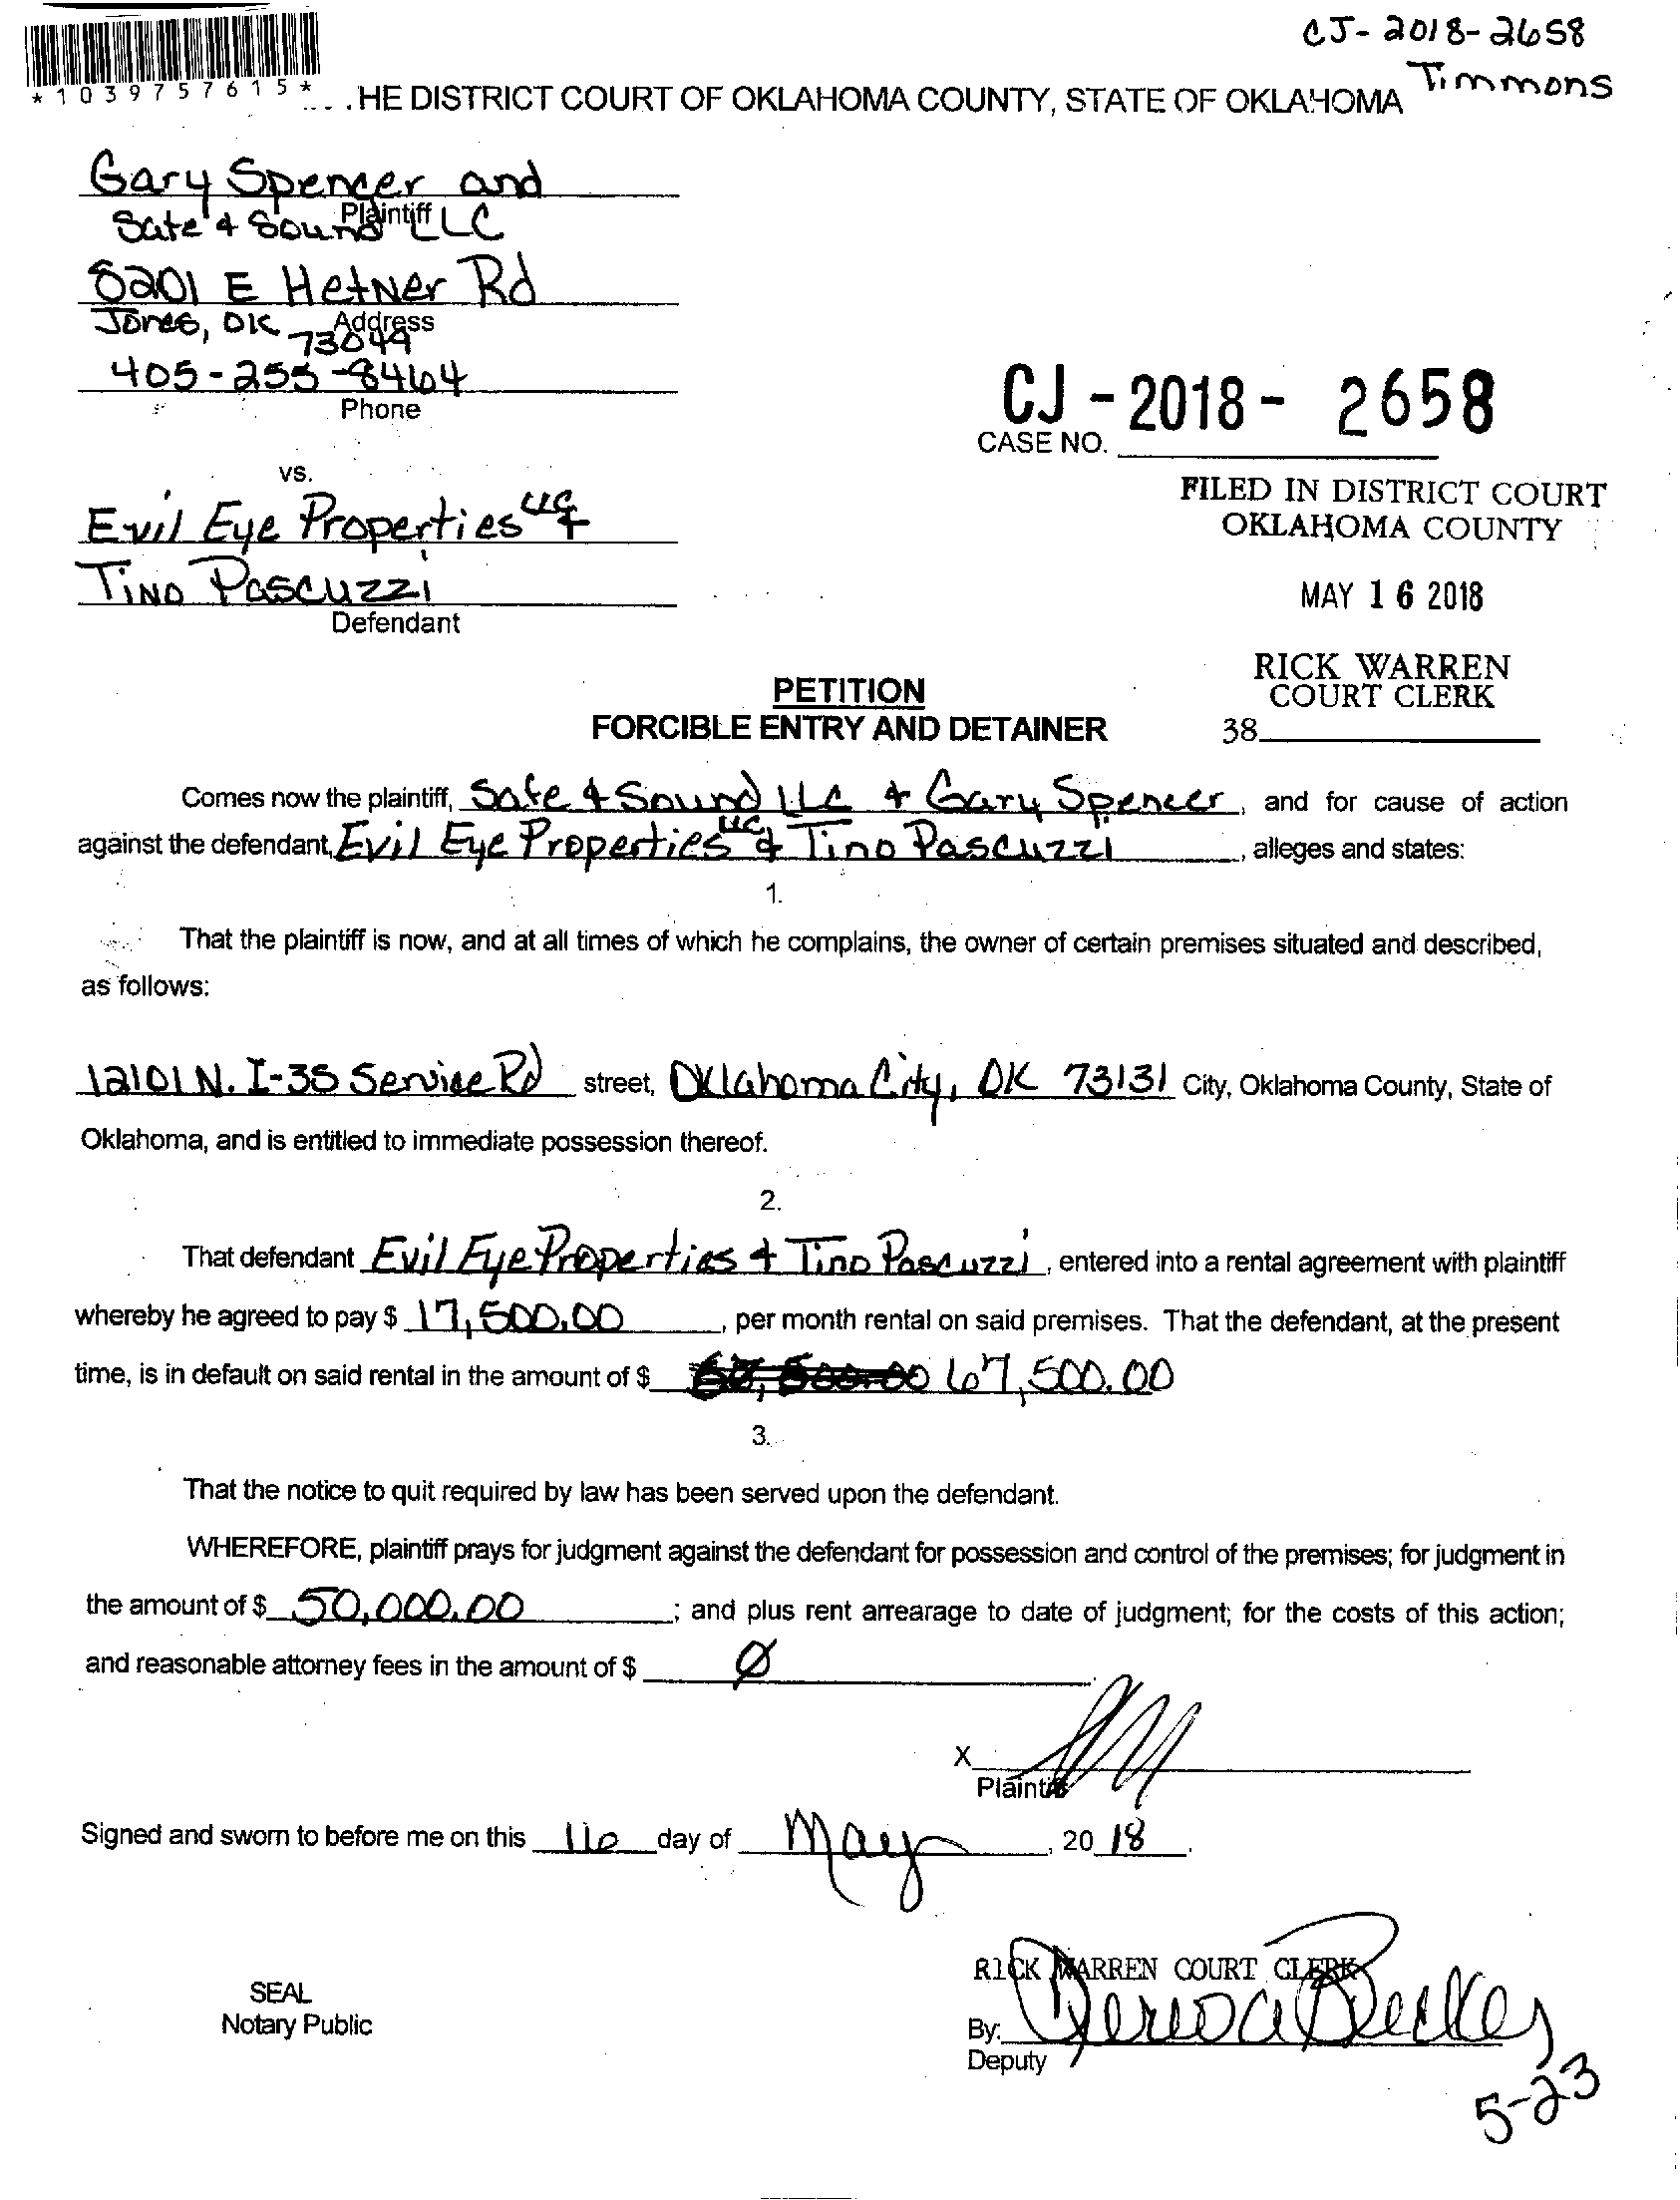 CJ-2018-2658
Timmons
*1039757615*
HE DISTRICT COURT OF OKLAHOMA COUNTY, STATE OF OKLAHOMA
Gary Spencer and
Plaintiff
Safe & Sound LLC
8201 E Hefner Rd
Address
Jones, OK 73049
405-255-8464
Phone
CJ - 2018 - 2658
CASE NO.
vs.
FILED IN DISTRICT COURT
OKLAHOMA COUNTY
Evil Eye Properties LLC &
Tino Pascuzzi
Defendant
MAY 16 2018
RICK WARREN
COURT CLERK
38
PETITION
FORCIBLE ENTRY AND DETAINER
Comes now the plaintiff, Safe & Sound LLC & Gary Spencer, and for cause of action
against the defendant, Evil Eye Properties LLC & Tino Pascuzzi, alleges and states:
1.
That the plaintiff is now, and at all times of which he complains, the owner of certain premises situated and described,
as follows:
12101 N. I-35 Service Rd street, Oklahoma City, OK 73131 City, Oklahoma County, State of
Oklahoma, and is entitled to immediate possession thereof.
2.
That defendant Evil Eye Properties & Tino Pascuzzi, entered into a rental agreement with plaintiff
whereby he agreed to pay $ 17,500.00, per month rental on said premises. That the defendant, at the present
time, is in default on said rental in the amount of $ 67,500.00
3.
That the notice to quit required by law has been served upon the defendant.
WHEREFORE, plaintiff prays for judgment against the defendant for possession and control of the premises; for judgment in
the amount of $ 50,000.00; and plus rent arrearage to date of judgment; for the costs of this action;
and reasonable attorney fees in the amount of $ Ø
X
Plaintiff
Signed and sworn to before me on this 16 day of May, 20 18.
RICK WARREN COURT CLERK
SEAL
Notary Public
By:
Deputy
5-23